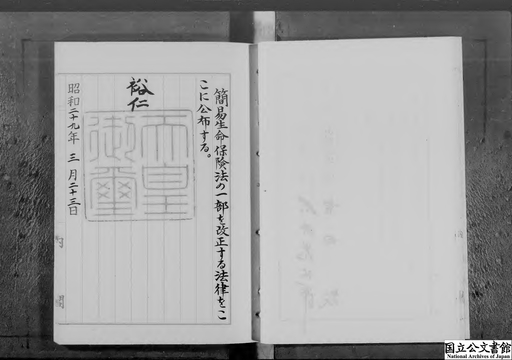 簡易生命保険法の一部を改正する法律をこ
こに公布する。
裕仁
天皇
御璽
昭和二十九年三月二十三日
国立公文書館
National Archives of Japan